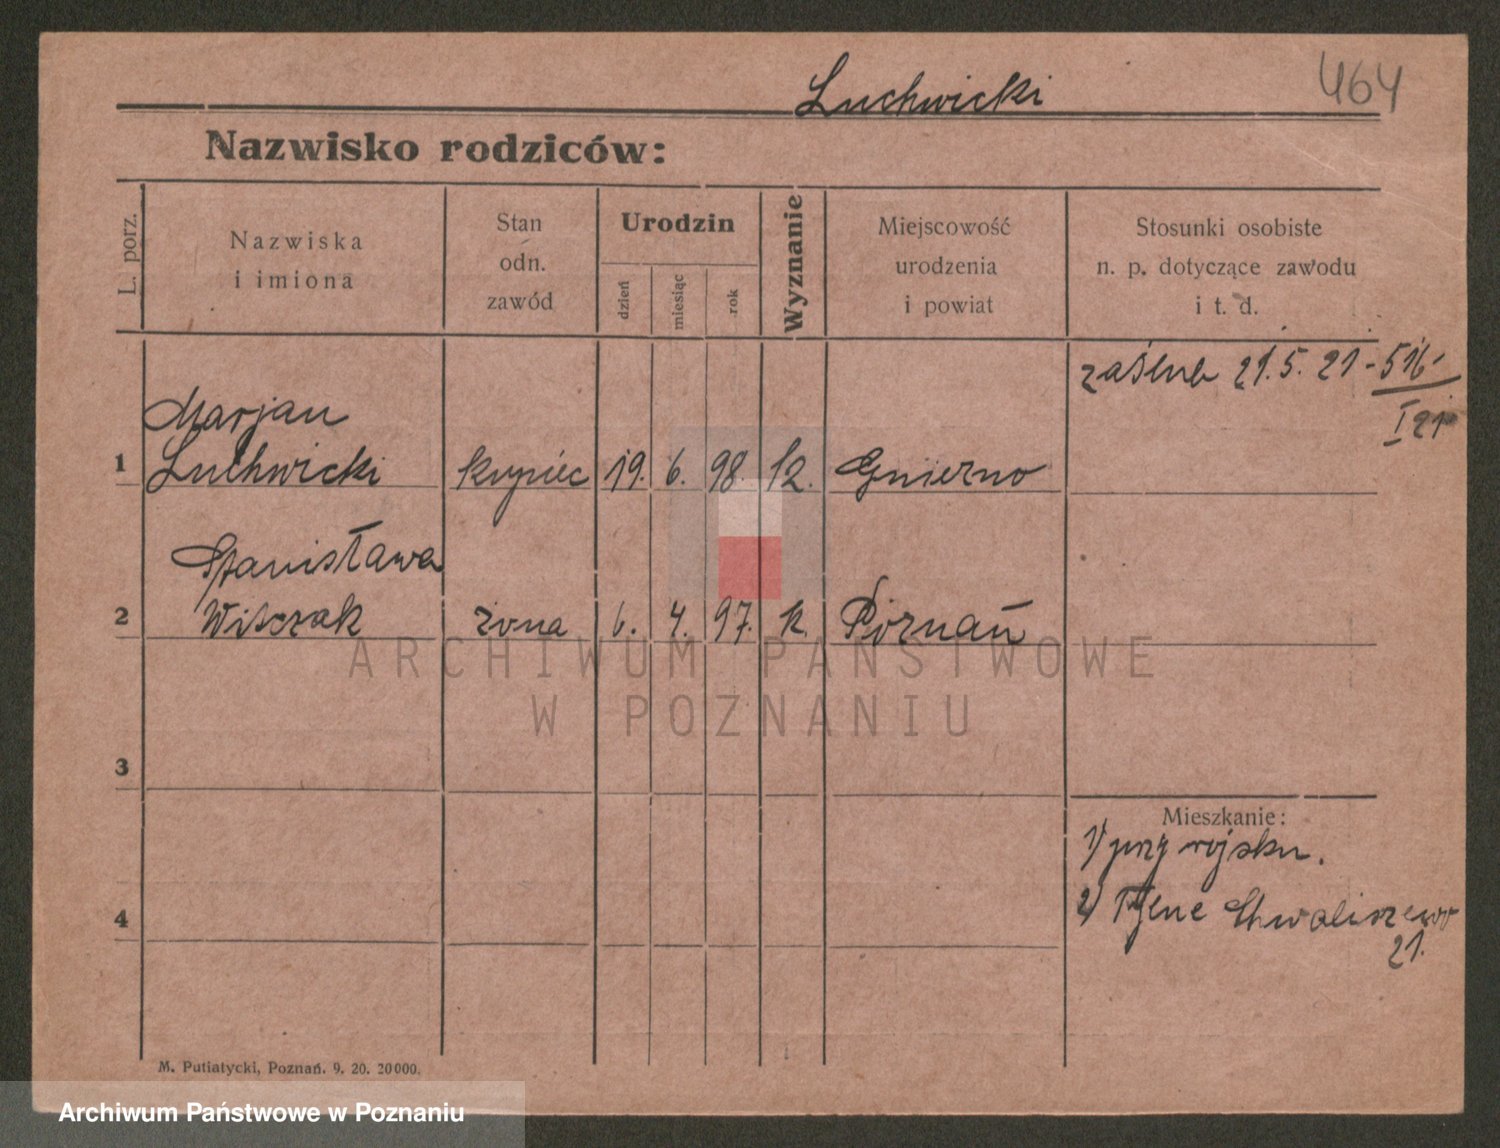 Luchwicki
464
Nazwisko rodziców:
L. porz.
Nazwiska
i imiona
Stan
odn.
zawód
Urodzin
dzień
miesiąc
rok
Wyznanie
Miejscowość
urodzenia
i powiat
Stosunki osobiste
n. p. dotyczące zawodu
i t. d.
zaślub 21.5.21 - 516
I 21
Marjan
1 Luchwicki kupiec 19. 6. 98. k. Gniezno
Stanisława
2 Witczak żona 6. 4. 97. k. Poznań
3
4
Mieszkanie:
1) przy wojsku.
2) Chwaliszewo
21.
ARCHIWUM PAŃSTWOWE
W POZNANIU
M. Putiatycki, Poznań. 9. 20. 20000.
Archiwum Państwowe w Poznaniu